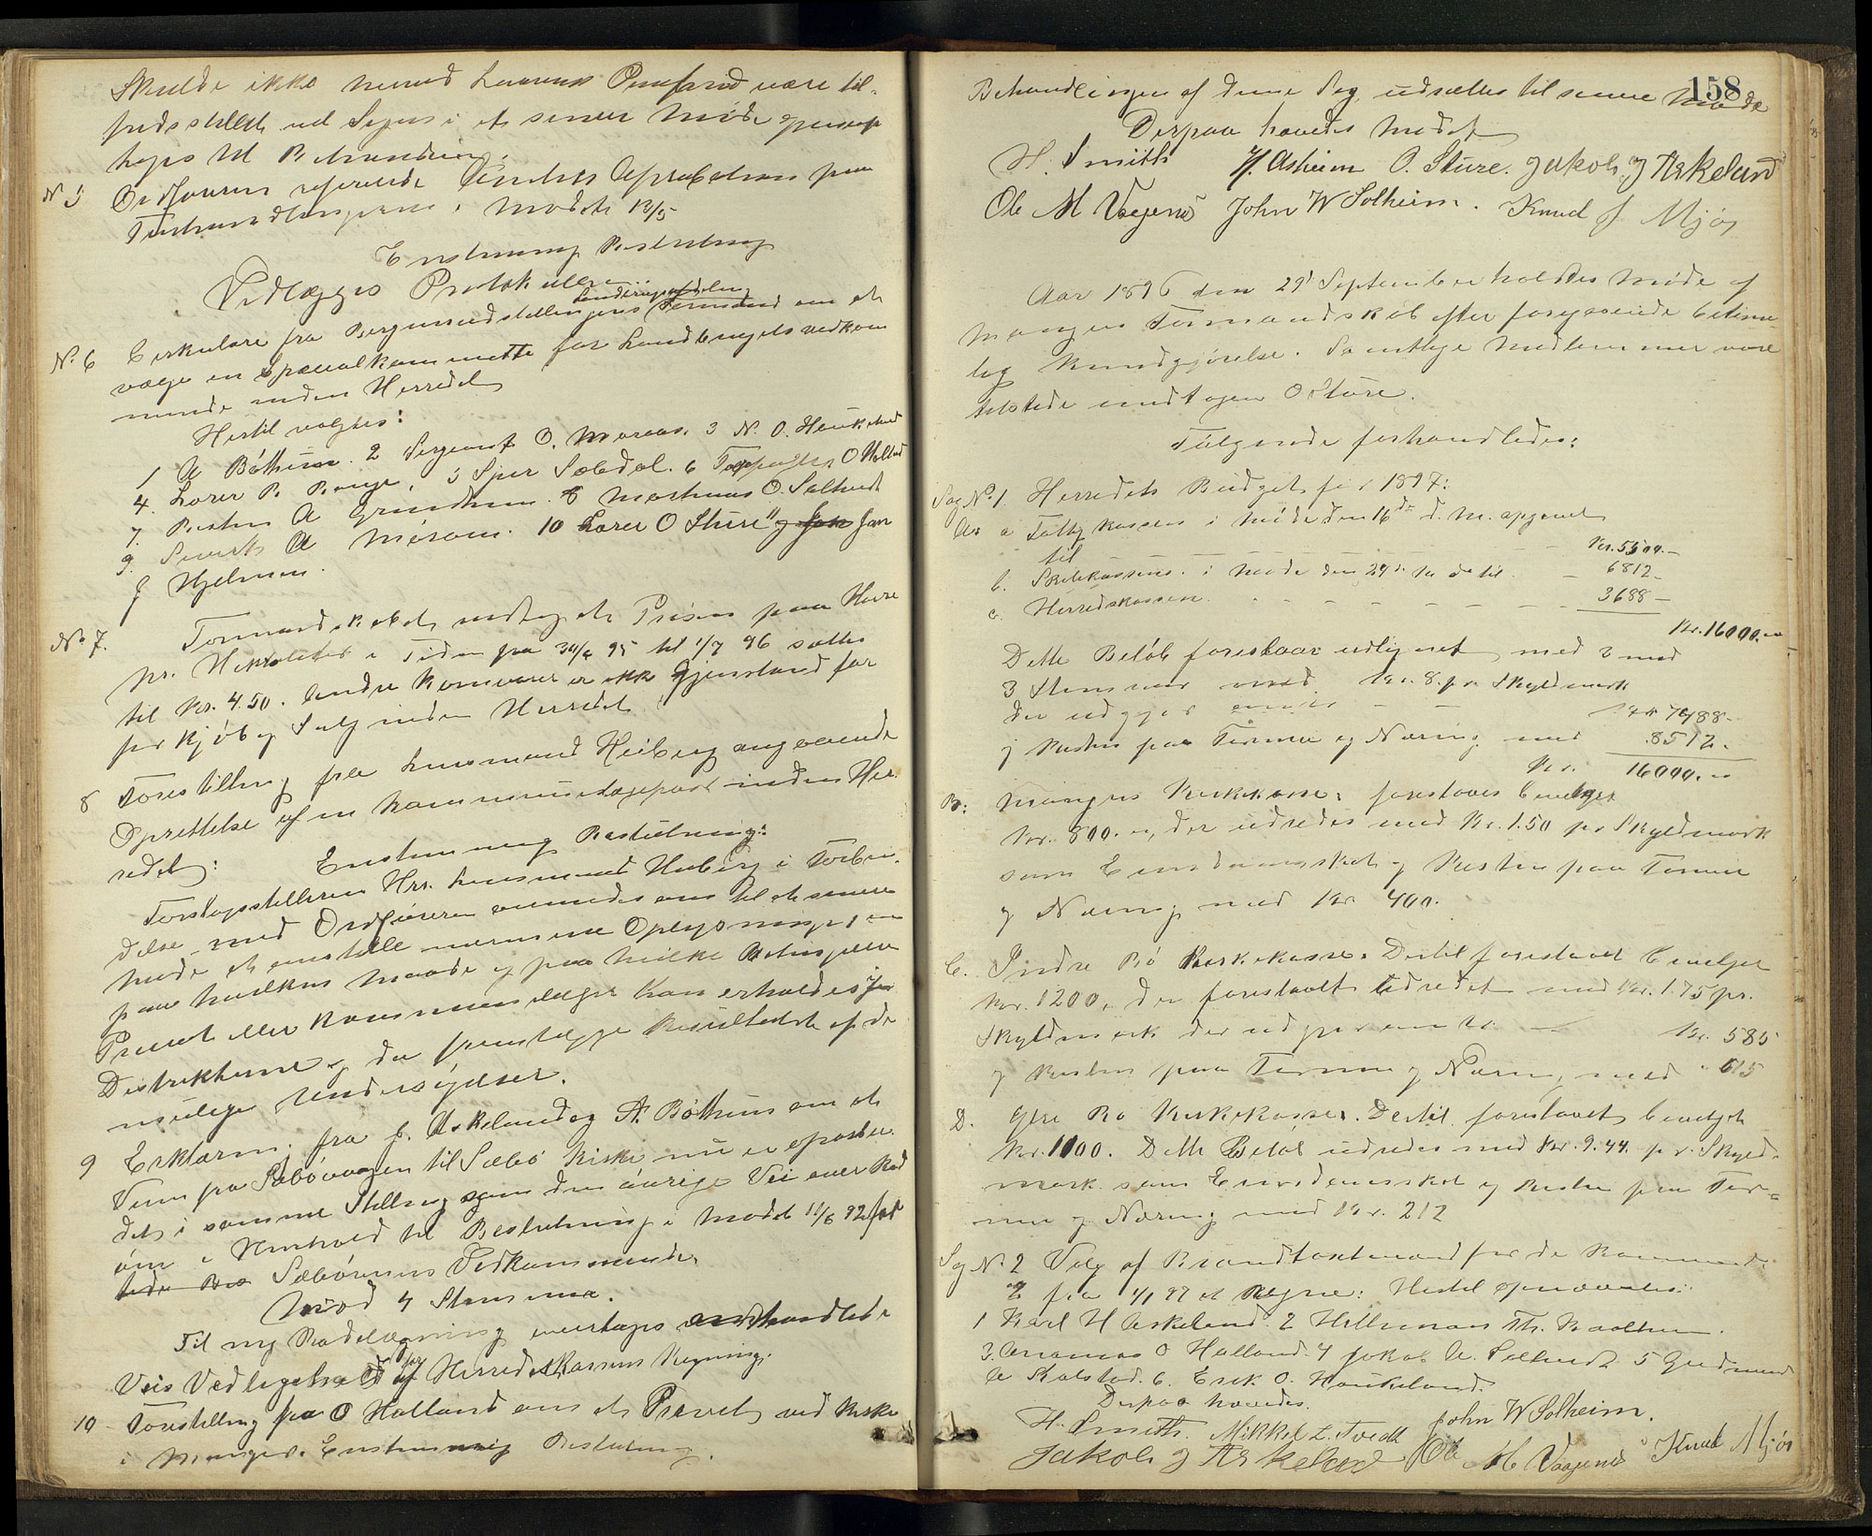 Skulde ikke herved være til-
fredsstillet ved Sagen i et senere Møde
tages til Behandling.
No 5 Ordføreren refererede Amtets Aprobation paa
i Mødet 12/5
Enstemmig Beslutning
Vedlægges Protokollen.
No 6 Cirkulære fra Bergensudstillingens Landbrugsafdeling om at
vælge en Specialkommitte for Landbrugets vedkom
mende inden Herredet
Hertil valgtes:
1 A Bøthun. 2 Sergeant O. 3 N. O. Haukeland
4. Lærer B. 5 Sjur Sæbdal. 6 O Halland
7. A 8 Mathias O. Solheim
9. Sjurd A 10 Lærer O Sture og Jan
J Hjelmen.
No 7. Formandskabet vedtog at Prisen paa Havre
pr. Hektoliter i Tiden fra 30/6 95 til 1/7 96 sættes
til Kr. 4.50. Andre Kornvarer er ikke Gjenstand for
for Kjøb og Salg inden Herredet
8 Forestilling fra Lensmand Heiberg angaaende
Oprettelse af en Kommunelægepost inden Her-
redet: Enstemmig Beslutning:
Forslagsstilleren Hr. Lensmand Heiberg i Forbin-
delse med Ordføreren anmodes om til et senere
Møde at anstille nærmere Oplysninger om
paa hvilken Maade og paa hvilke Betingelser
Privat eller Kommunelæge kan erholdes
Distrikterne og da fremlægge Resultatet af de
mulige Undersøgelser.
9 Erklæring fra J. Askeland og A. Bøthun om at
Veien fra Sæbøvaagen til Sæbø Kirke nu er oparbei-
det i samme Stilling som den øvrige Vei over Rad
øen i Henhold til Beslutning i Mødet 11/6 92
Sæbøveien Vedkommende
Mod 4 Stemmer.
Til ny Rodelægning overtages
Veis Vedligehold for Herredskassens Regning.
10 Forestilling fra O Halland om et Privet ved Kirken
i Manger. Enstemmig Beslutning.
158
Behandlingen af denne Sag udsættes til senere Møde
Derpaa hævedes Mødet
H. Smith H. Asheim O. Sture. Jakob J Askeland
Ole M Vaagenes John W Solheim. Knud J Mjøs
Aar 1896 den 29 September holdtes Møde af
Mangers Formandskab efter foregaaende betime-
lig Kundgjørelse. Samtlige Medlemmer vare
tilstede undtagen O Sture.
Følgende forhandledes:
Sag No 1. Herredets Budget for 1897:
a Fattigkassen i Møde den 16de d. M. opgjort
til Kr. 5500.-
b. Skolekassens i Møde den 24d til 6812-
c. Herredskassen 3688-
Kr. 16000.-
Dette Beløb foreslaaes udlignet med 3 mod
3 Stemmer med Kr. 8. pr Skyldmark
der udgjør omtr 7488-
og Resten paa Formue og Næring med 8512.
Kr. 16000.-
B: Mangers Kirkekasse: foreslaaes bevilget
Kr. 800.-, der udredes med Kr. 1.50 pr Skyldmark
som Eiendomsskat og Resten paa Formue
og Næring med Kr 400.
C. Indre Bø Kirkekasse. Dertil foreslaaet bevilget
Kr. 1200, der foreslaaet udredet med Kr. 1.75 pr.
Skyldmark der udgjør omtr. Kr. 585
og Resten paa Formue og Næring med " 615
D. Ytre Bø Kirkekasse. Dertil foreslaaet bevilget
Kr. 1100. Dette Beløb udredes med Kr. 9.44. pr. Skyld-
mark som Eiendomsskat og Resten paa For-
mue og Næring med Kr. 212
Sag No 2 Valg af Brandtaxtmænd for de kommende
fra 1/1 97 at regne: Hertil opnævntes:
1 Karl H Askeland. 2 Hilmar
3. Andreas O Halland. 4 Jakob A. Solheim 5 Gudmund
A Kolstad. 6. Erik O. Haukeland.
Derpaa hævedes.
H. Smith. Mikkel L. Tvedt John W Solheim.
Jakob J Askeland Ole M Vaagenes Knud Mjøs